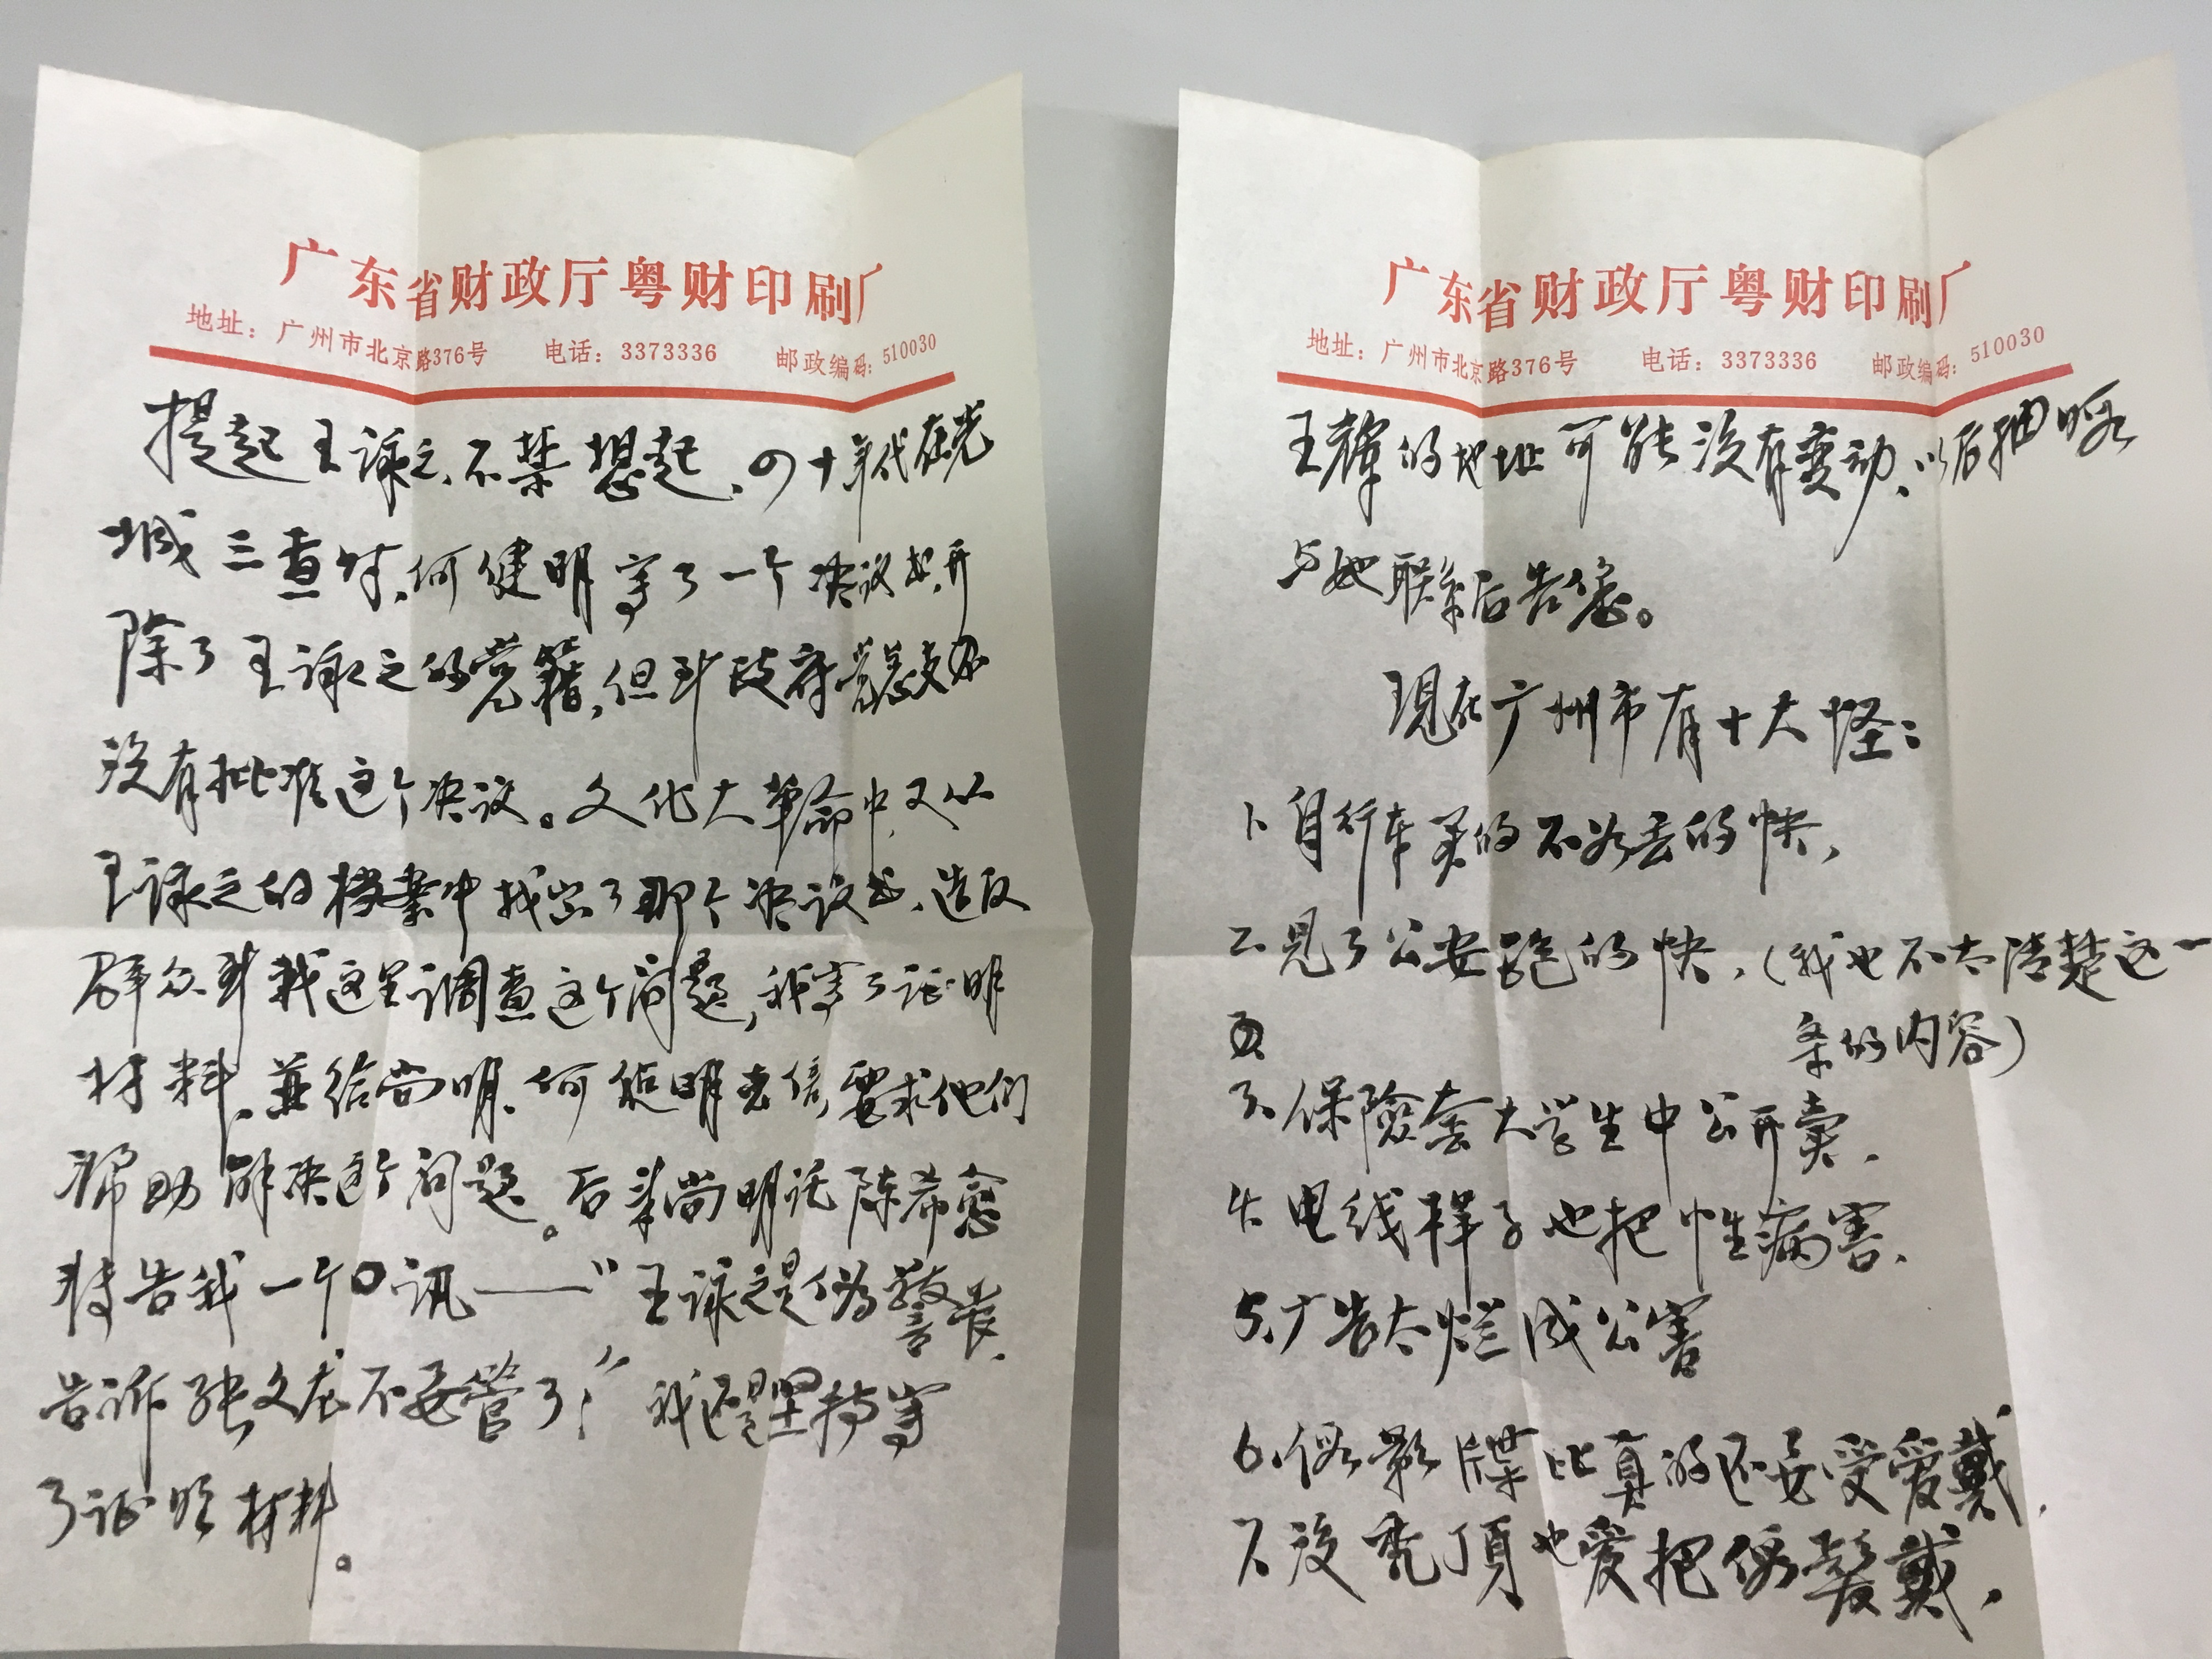 广东省财政厅粤财印刷厂
地址：广州市北京路376号 电话：3373336 邮政编码：510030
提起王詠之、不禁想起、四十年代在兴
城三查时、何健明写了一个决议书、开
除了王詠之的党籍，但到政府党总支部
没有批准这个决议。文化大革命中，又从
王詠之的档案中找出了那个决议书、造反
群众到我这里调查这个问题，我写了证明
材料、并给尚明、何健明去信，要求他们
帮助解决这个问题。后来尚明托陈希愈
转告我一个口讯——“王詠之是伪警长、
告诉张文龙不要管了！”我还是坚持写
了证明材料。
广东省财政厅粤财印刷厂
地址：广州市北京路376号 电话：3373336 邮政编码：510030
王辉的地址可能没有变动、以后抽暇
与她联系后告您。
现在广州市有十大怪：
1、自行车买的不如丢的快，
2、见了公安跑的快，（我也不太清楚这一
条的内容）
3、保险套大学生中公开卖，
4、电线样子也把性病害、
5、广告太烂成公害
6、假影牒比真的还要受爱戴，
7、没秃顶也爱把假髪戴，